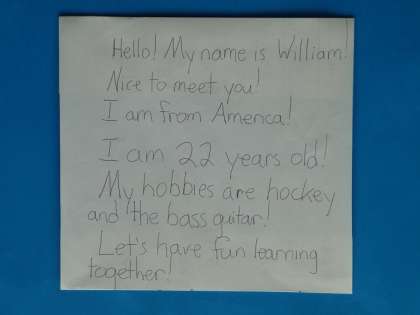 Hello! My name is William!
Nice to meet you!
I am from America!
I am 22 years old!
My hobbies are hockey
and the bass guitar!
Let's have fun learning
together!